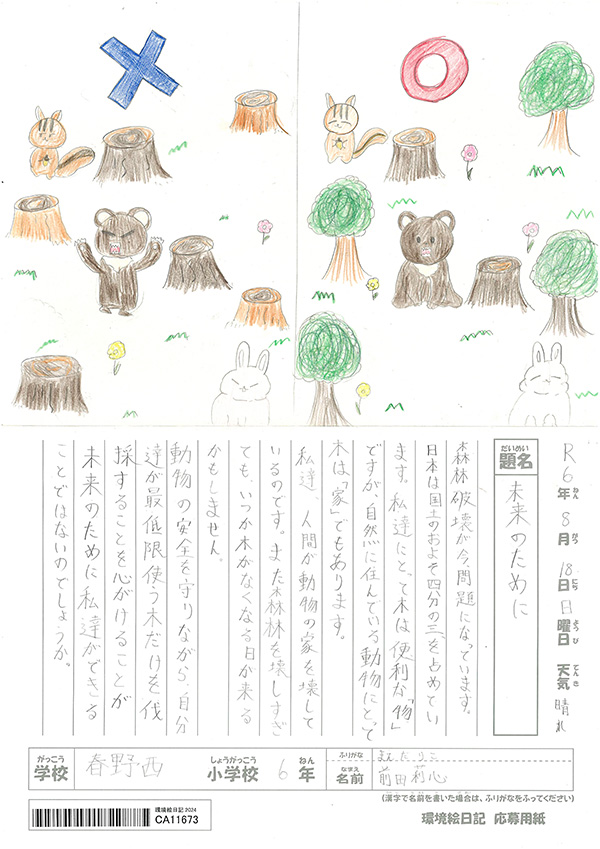 R6年8月18日日曜日 天気 晴れ
ねん がつ にち ようび てんき
だいめい
題名 未来のために
森林破壊が今、問題になっています。
日本は国土のおよそ四分の三を占めてい
ます。私達にとって木は便利な「物」
ですが、自然に住んでいる動物にとって
木は「家」でもあります。
私達、人間が動物の家を壊して
いるのです。また森林を壊しすぎ
ても、いつか木がなくなる日が来る
かもしません。
動物の安全を守りながら、自分
達が最低限使う木だけを伐
採することを心がけることが
未来のために私達ができる
ことではないのでしょうか。
がっこう しょうがっこう ねん ふりがな まえだ りこ
学校 春野西 小学校 6年
なまえ
名前 前田莉心
(漢字で名前を書いた場合は、ふりがなをふってください)
環境絵日記 2024
CA11673
環境絵日記 応募用紙